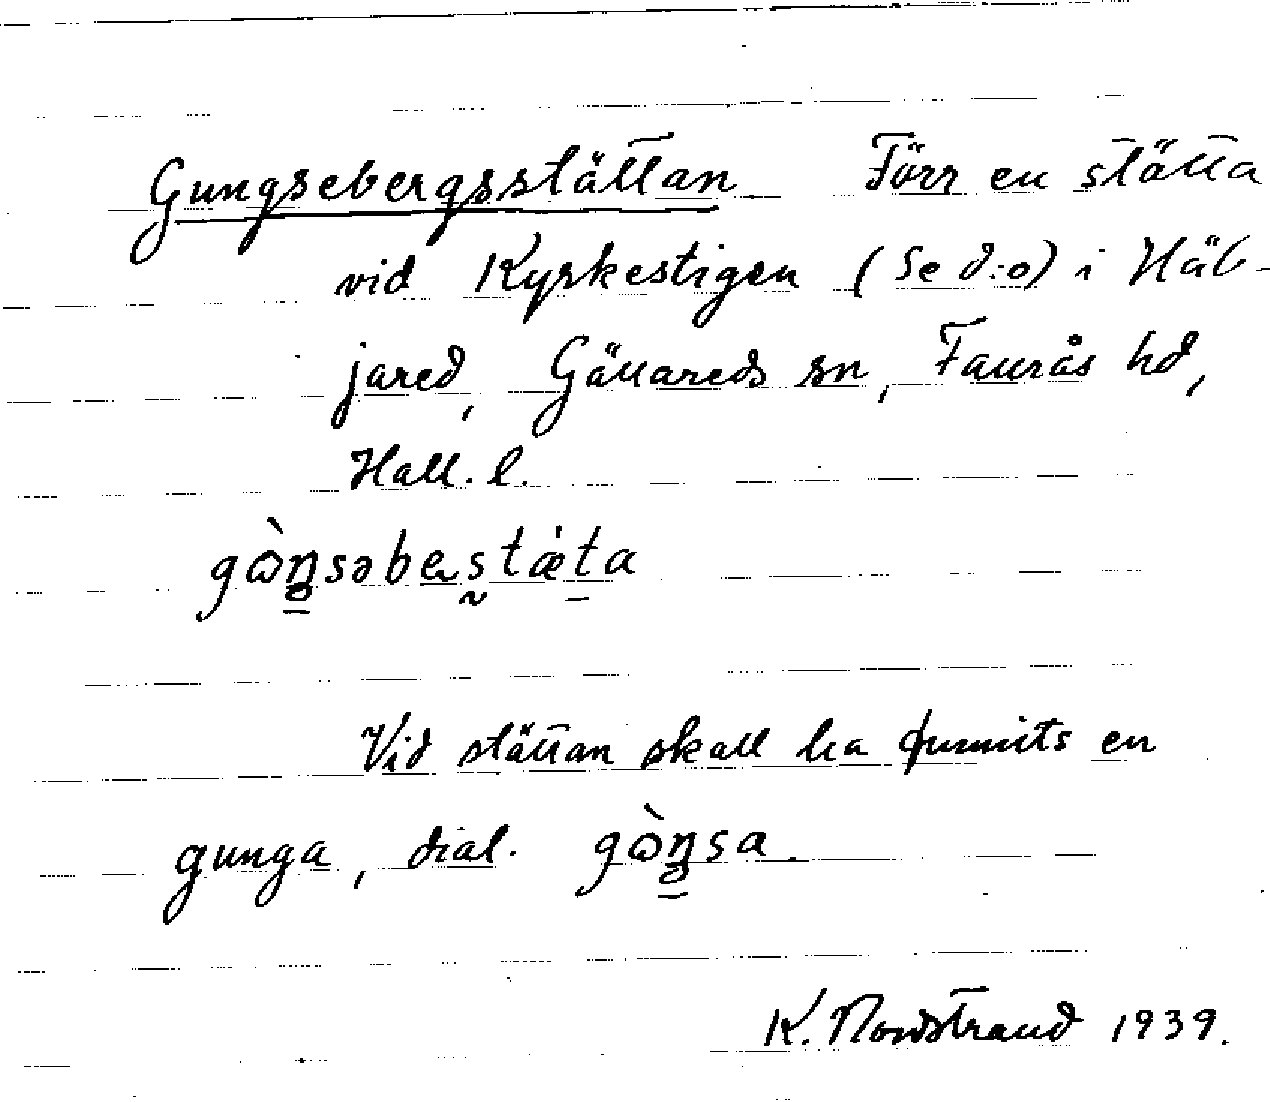 Gungsebergsstättan Förr en stätta
vid Kyrkestigen (se d:o) i Häb-
jared, Gällareds sn, Faurås hd,
Hall. l.
gὼŋsəbeʂtǽta
Vid stättan skall ha funnits en
gunga, dial. gὼŋsa.
K. Nordstrand 1939.